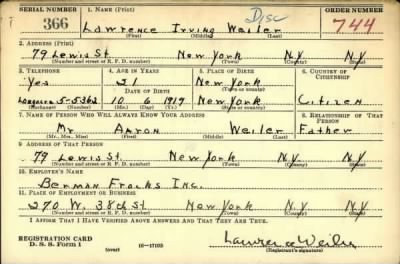 SERIAL NUMBER 1. NAME (Print) ORDER NUMBER
366 Lawrence Irving Weiler Disc 744
(First) (Middle) (Last)
2. ADDRESS (Print)
79 Lewis St. New York N.Y N.Y
(Number and street or R. F. D. number) (Town) (County) (State)
3. TELEPHONE 4. AGE IN YEARS 5. PLACE OF BIRTH 6. COUNTRY OF CITIZENSHIP
Yes 21 New York
DATE OF BIRTH (Town or county)
5-5362 10 6 1919 New York Citizen
(Exchange) (Number) (Mo.) (Day) (Yr.) (State or country)
7. NAME OF PERSON WHO WILL ALWAYS KNOW YOUR ADDRESS 8. RELATIONSHIP OF THAT PERSON
Mr Aaron Weiler Father
(Mr., Mrs., Miss) (First) (Middle) (Last)
9. ADDRESS OF THAT PERSON
79 Lewis St. New York N.Y N.Y
(Number and street or R. F. D. number) (Town) (County) (State)
10. EMPLOYER'S NAME
Berman Frocks Inc.
11. PLACE OF EMPLOYMENT OR BUSINESS
270 W. 38th St. New York N.Y N.Y.
(Number and street or R. F. D. number) (Town) (County) (State)
I AFFIRM THAT I HAVE VERIFIED ABOVE ANSWERS AND THAT THEY ARE TRUE.
REGISTRATION CARD
D. S. S. Form 1 (over) 16-17105 Lawrence Weiler
(Registrant's signature)